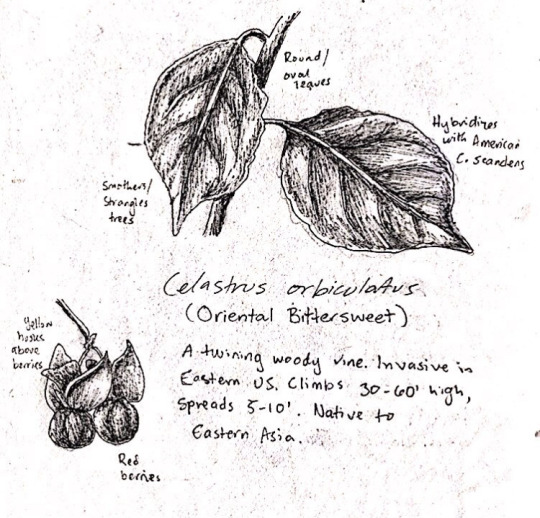 Round/
oval
leaves
Hybridizes
with American
C. scandens
Smothers/
Strangles
trees
Celastrus orbiculatus
(Oriental Bittersweet)
Yellow
husks
above
berries
A twining woody vine. Invasive in
Eastern US. Climbs 30-60' high,
Spreads 5-10'. Native to
Eastern Asia.
Red
berries